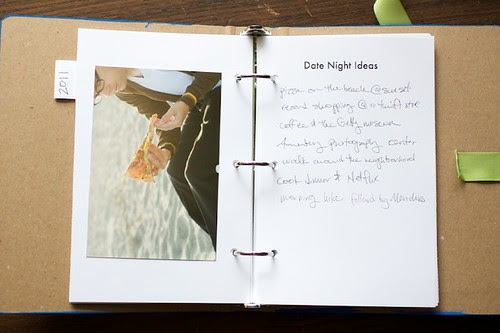 2011
Date Night Ideas
pizza on the beach @ sunset
record shopping @ a thrift store
coffee & the Getty museum
Annenberg photography center
walk around the neighborhood
cook dinner & Netflix
morning hike followed by